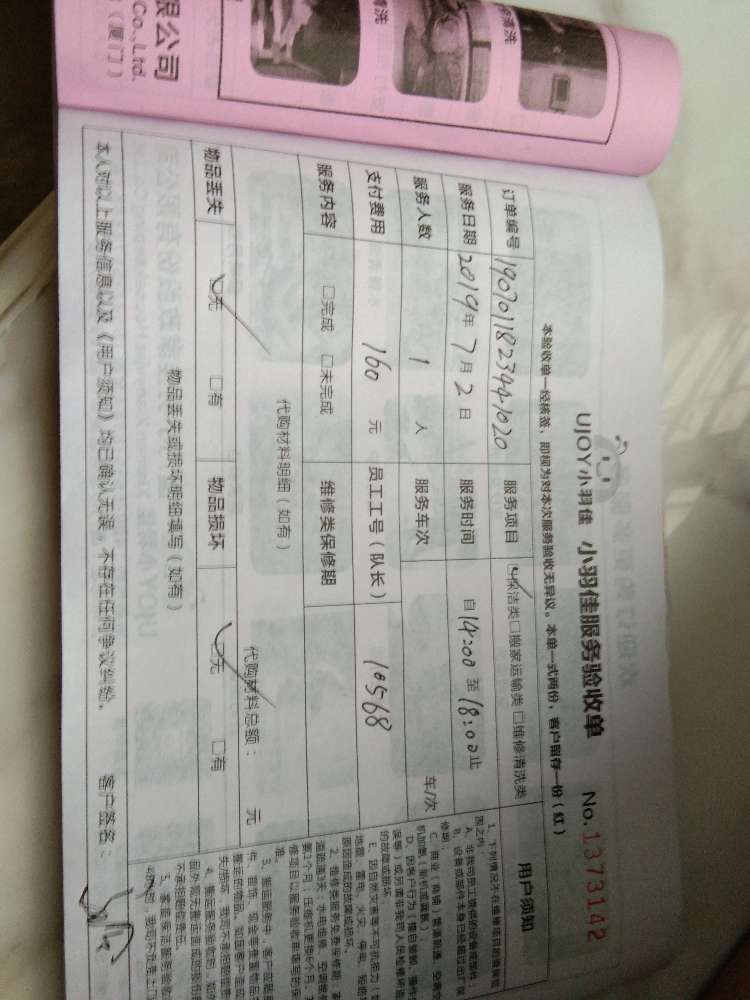 限公司
Co.,Ltd.
（厦门）
清洗
清洗
UJOY小羽佳 小羽佳服务验收单 No.1373142
本验收单一经核签，即视为对本次服务验收无异议。本单一式两份，客户留存一份（红）
订单编号 1907011823441020 服务项目 ☑保洁类□搬家运输类□维修清洗类
服务日期 2019年7月2日 服务时间 自14:00至18:00止
服务人数 1 人 服务车次 车/次
支付费用 160 元 员工工号（队长） 10568
服务内容 □完成 □未完成 维修类保修期
代购材料明细（如有） 代购材料总额： 元
物品丢失 ☑无 □有 物品损坏 ☑无 □有
物品丢失或损坏明细填写（如有）
本人对以上服务信息以及《用户须知》均已确认无误，不存在任何争议纠纷。 客户签名：
用户须知
1、下列情况不在维修项目的保修范
围之内：
A、非我司员工提供的设备或部件；
B、设备或部件本身已经超过出厂保
修期；
D、因客户行为（擅自破解、操作
的故障或损坏
E、因自然灾害等不可抗拒力（如
地震、雷电、火灾、停电
固因造成的故障或损坏。
2、维修类服务免费保修期：家
3、搬运服务中，客户应提前